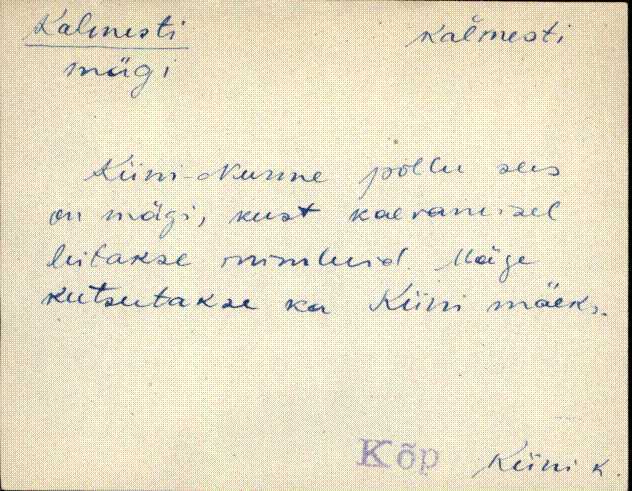 Kalmesti kal̆mesti
mägi
Kiini-Nurme põllu sees
on mägi, kust kaevamisel
leitakse inimluid. Mäge
kutsutakse ka Kiini mäeks.
Kõp Kiini k.